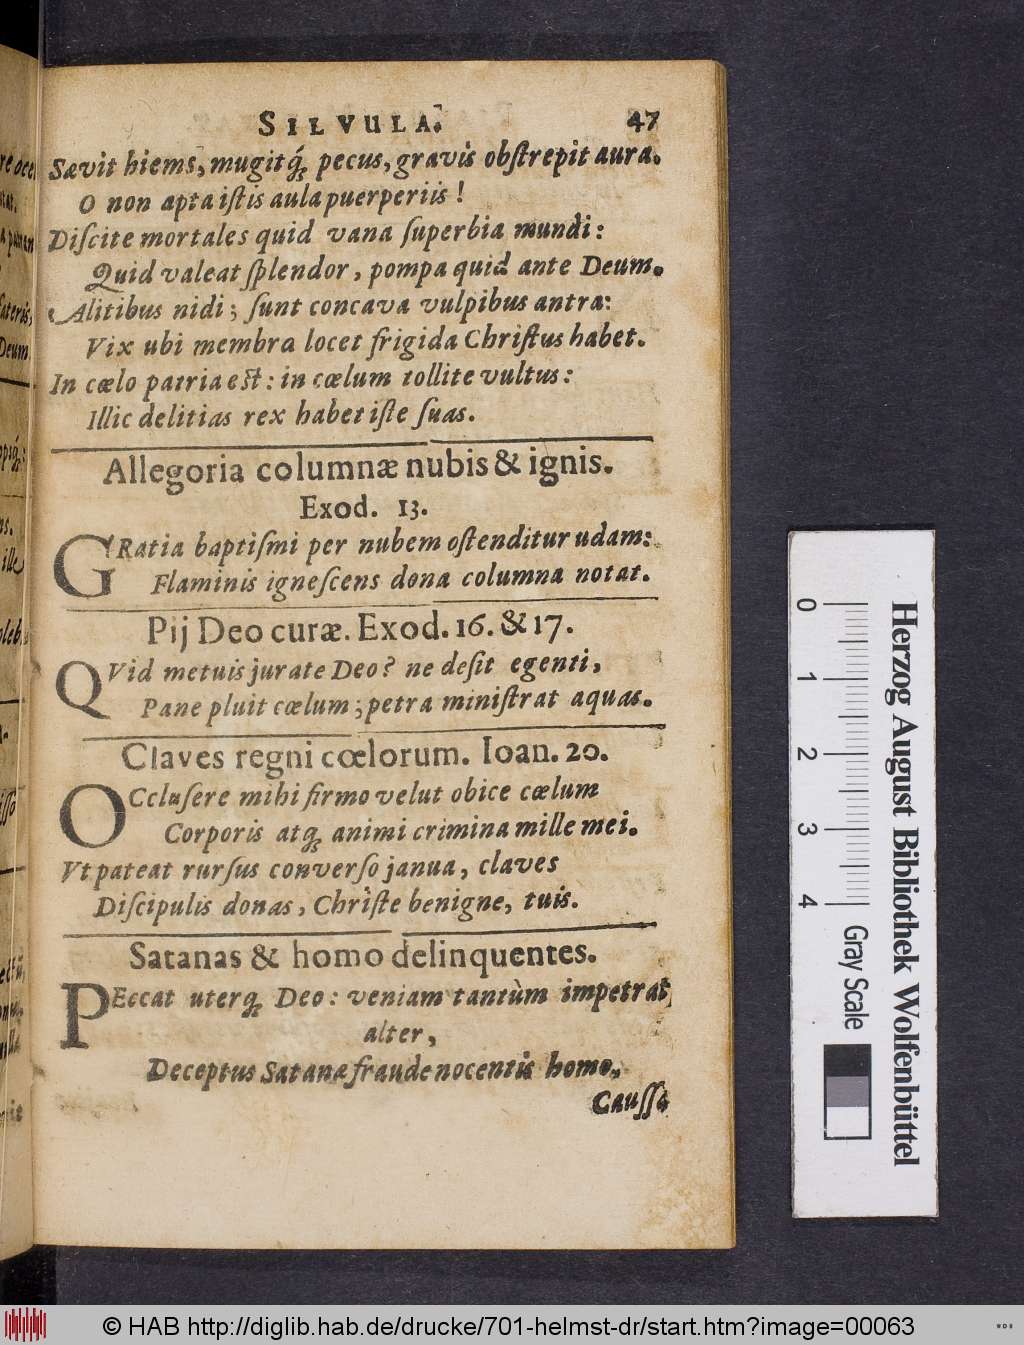 SILVULA. 47
Sævit hiems, mugitq́; pecus, gravis obſtrepit aura.
O non apta iſtis aula puerperiis!
Diſcite mortales quid vana ſuperbia mundi:
Quid valeat ſplendor, pompa quid ante Deum.
Alitibus nidi; ſunt concava vulpibus antra:
Vix ubi membra locet frigida Chriſtus habet.
In cœlo patria eſt: in cœlum tollite vultus:
Illic delitias rex habet iſte ſuas.
Allegoria columnæ nubis & ignis.
Exod. 13.
GRatia baptiſmi per nubem oſtenditur udam:
Flaminis igneſcens dona columna notat.
Pij Deo curæ. Exod. 16. & 17.
QVid metuis jurate Deo? ne deſit egenti,
Pane pluit cœlum; petra miniſtrat aquas.
Claves regni cœlorum. Ioan. 20.
OCcluſere mihi firmo velut obice cœlum
Corporis atq; animi crimina mille mei.
Vt pateat rurſus converſo janua, claves
Diſcipulis donas, Chriſte benigne, tuis.
Satanas & homo delinquentes.
PEccat uterq; Deo: veniam tantùm impetrat
alter,
Deceptus Satanæ fraude nocentis homo.
Cauſſa
0 1 2 3 4
Gray Scale
Herzog August Bibliothek Wolfenbüttel
© HAB http://diglib.hab.de/drucke/701-helmst-dr/start.htm?image=00063